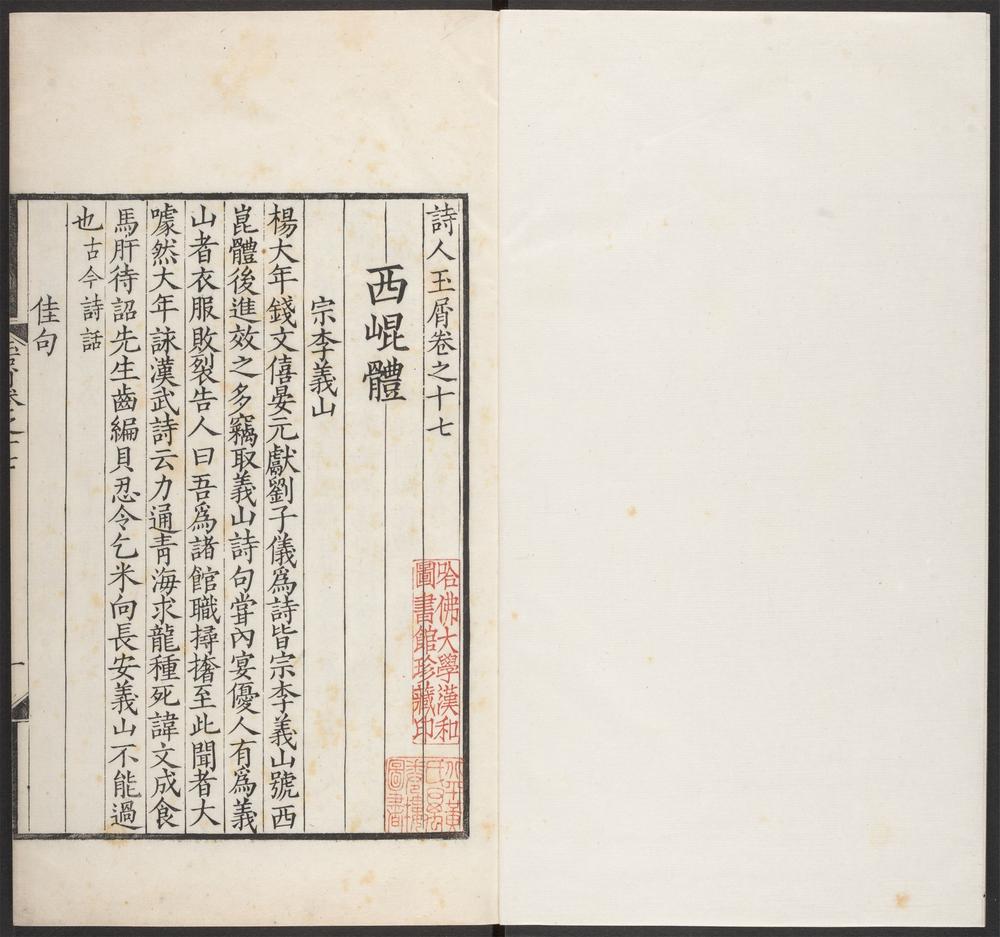 詩人玉屑卷之十七
西崐體
宗李義山
楊大年錢文僖晏元獻劉子儀爲詩皆宗李義山號西
崑體後進效之多竊取義山詩句嘗內宴優人有爲義
山者衣服敗裂告人曰吾爲諸館職撏撦至此聞者大
噱然大年詠漢武詩云力通青海求龍種死諱文成食
馬肝待詔先生齒編貝忍令乞米向長安義山不能過
也古今詩話
佳句
卷之十七
一
哈佛大學漢和
圖書館珍藏印